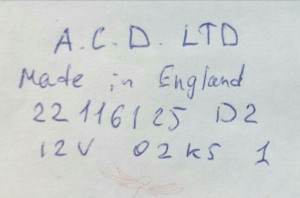 A.C.D. LTD
Made in England
22116125 D2
12V 02KS 1